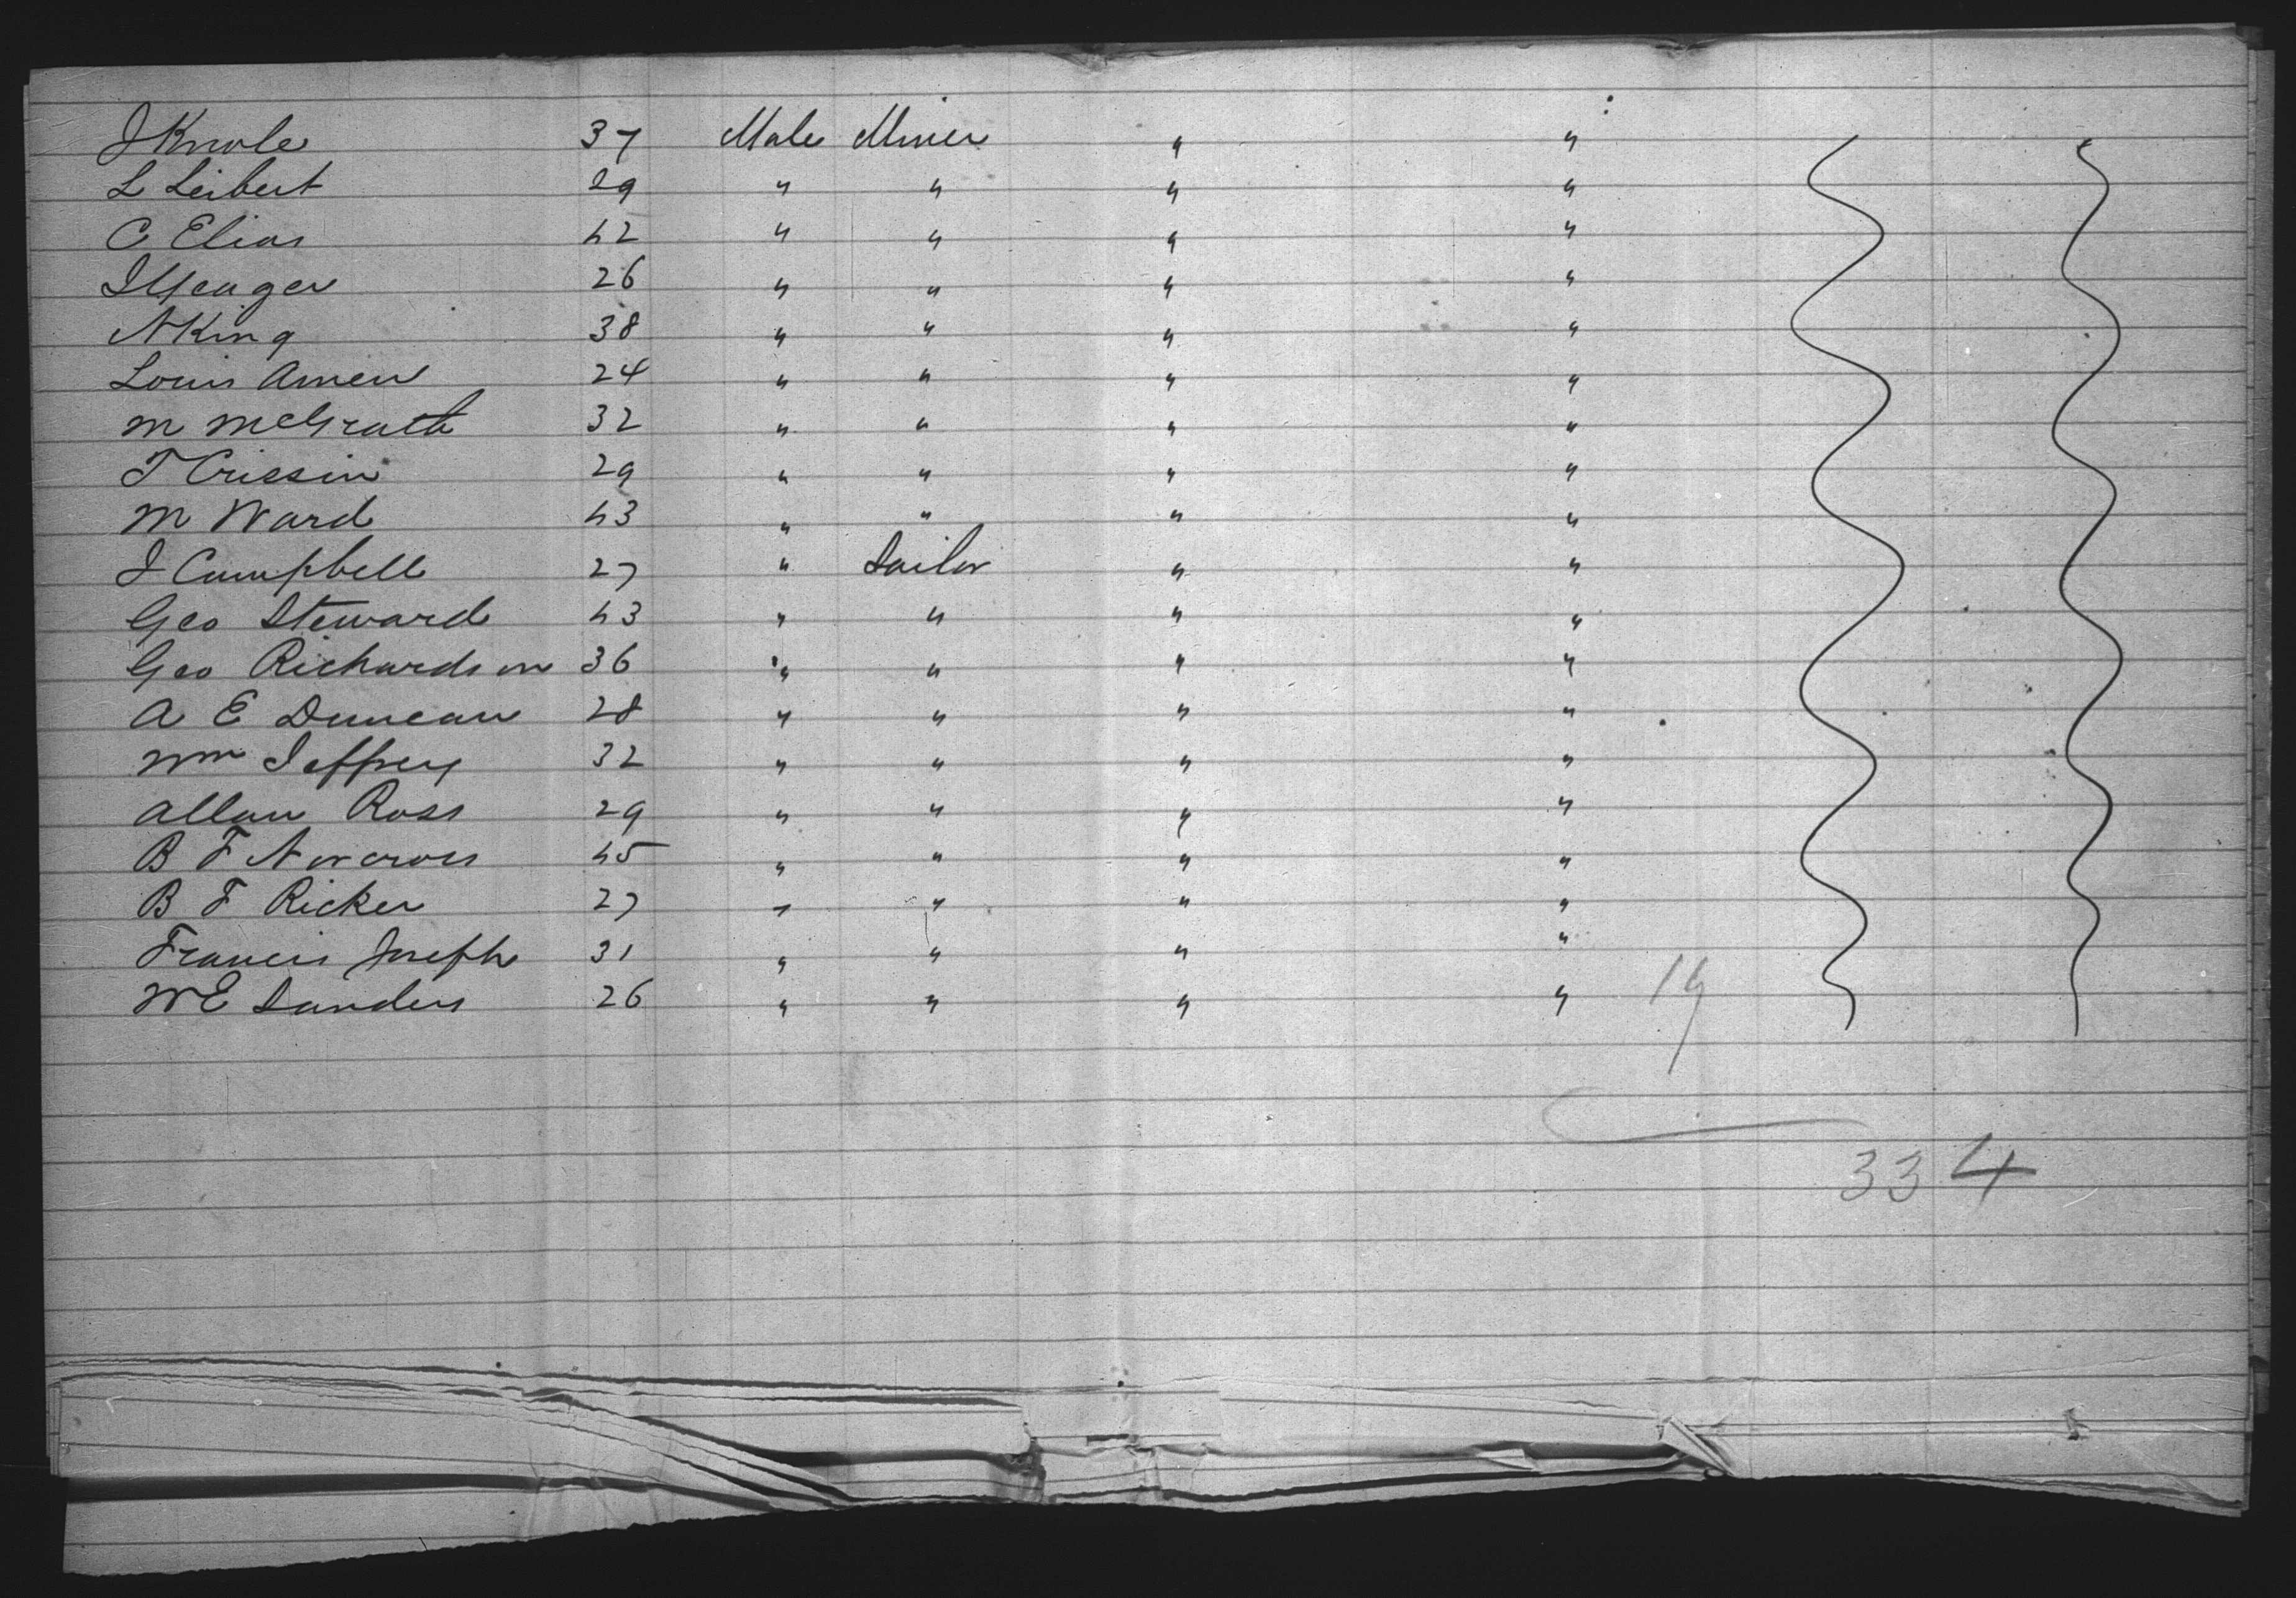 J Knole 37 Male Miner " "
L Leibert 29 " " " "
C Elias 42 " " " "
J Yeager 26 " " " "
N King 38 " " " "
Louis Amen 24 " " " "
M McGrath 32 " " " "
T Crissin 29 " " " "
M Ward 43 " " " "
J Campbell 27 " Sailor " "
Geo Steward 43 " " " "
Geo Richardson 36 " " " "
A E Duncan 28 " " " "
Wm Jeffrey 32 " " " "
Allan Ross 29 " " " "
B F Norcross 45 " " " "
B F Ricker 27 " " " "
Francis Joseph 31 " " " "
W E Sanders 26 " " " "
19
334